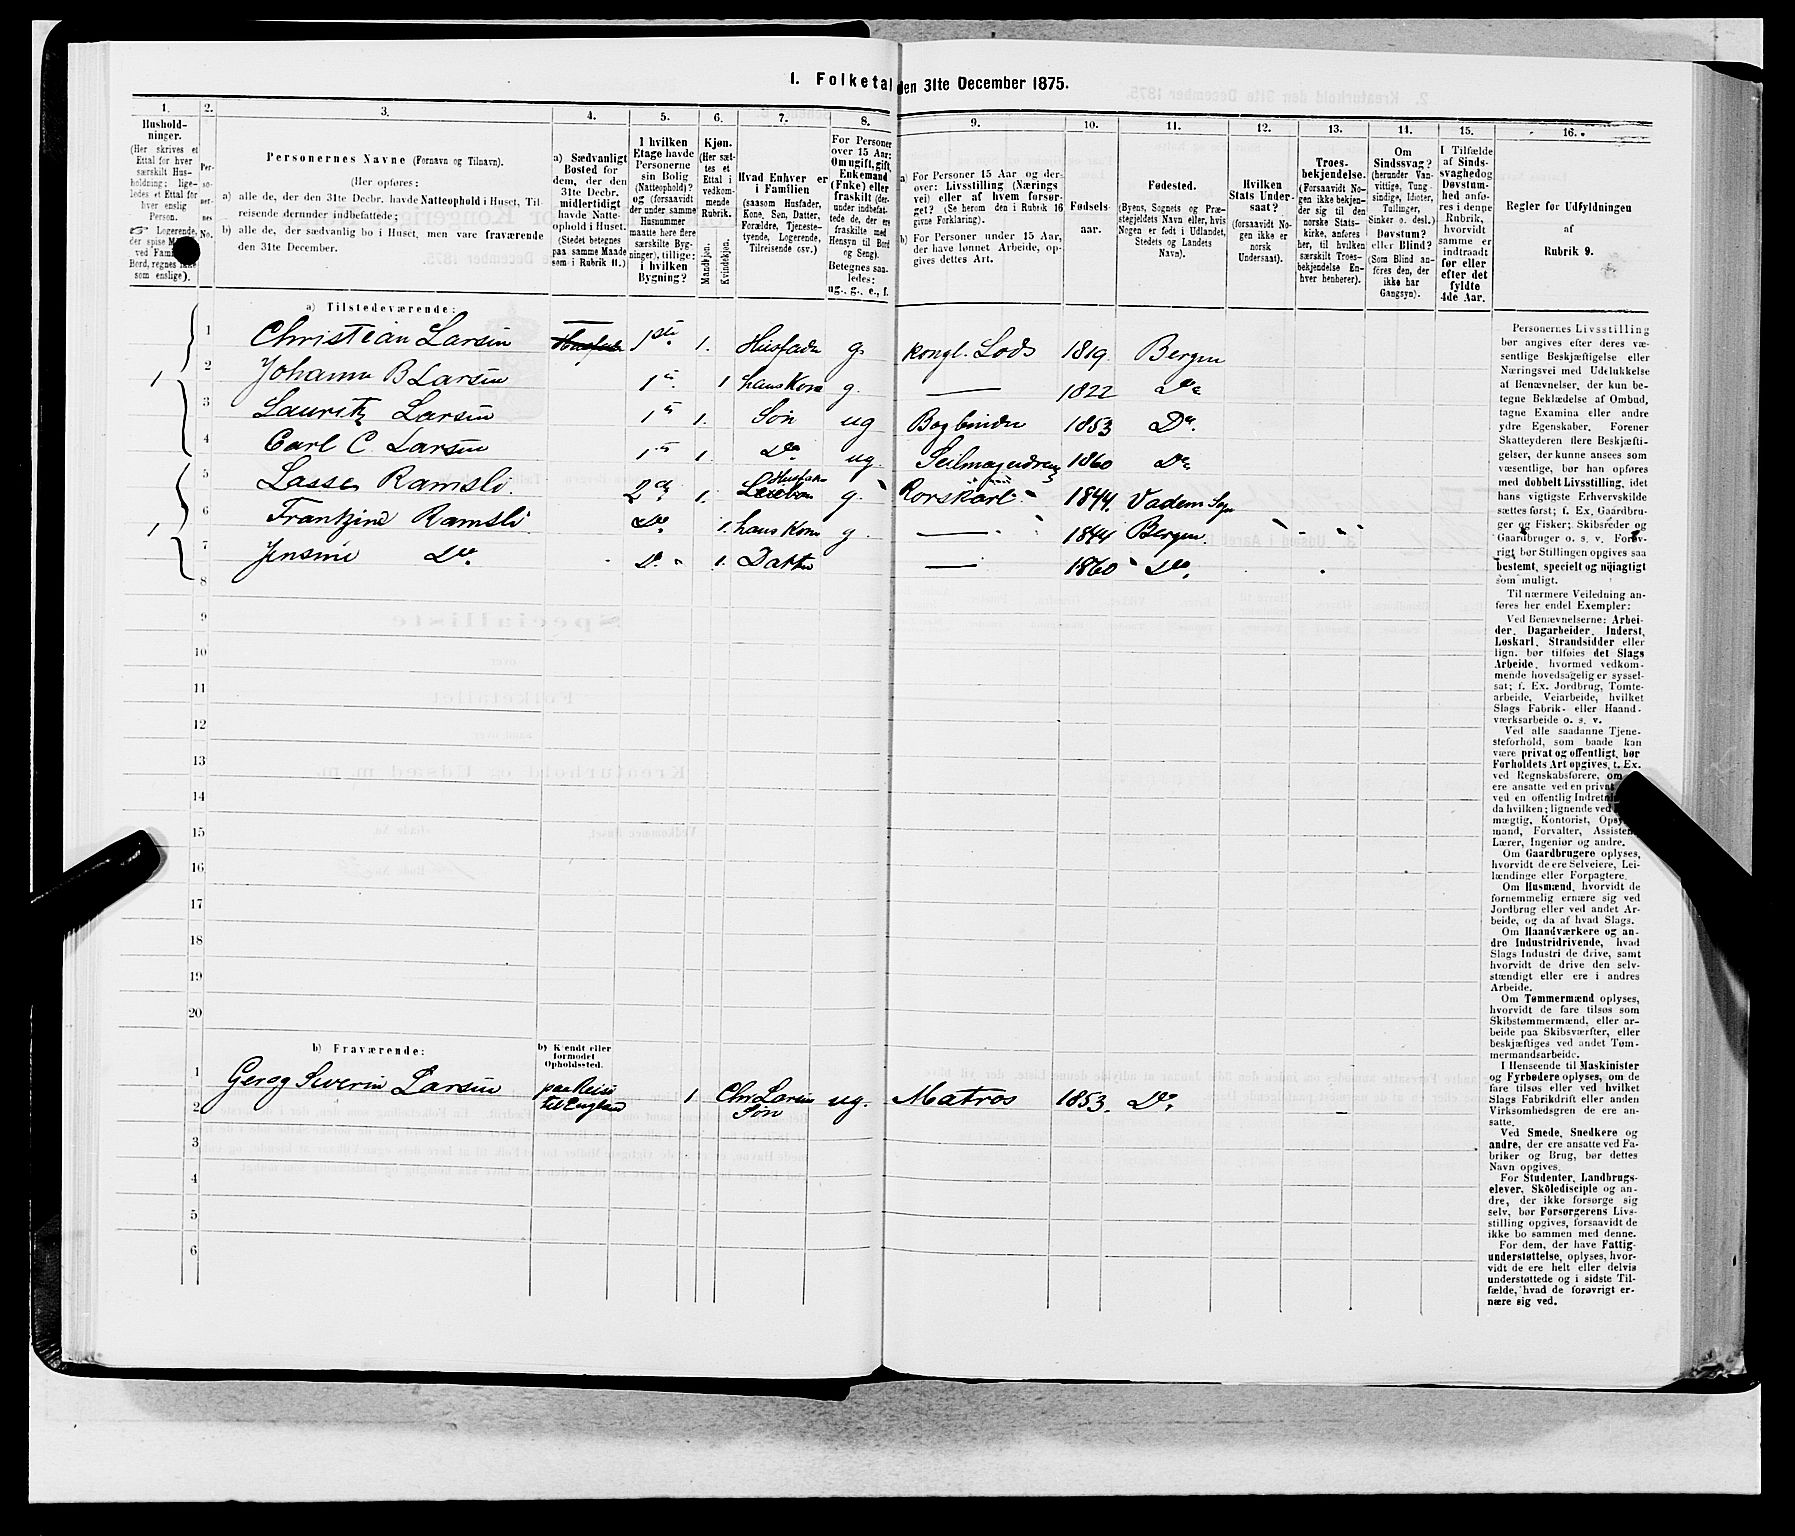 1. Folketal den 31te December 1875.
1. 2. 3. 4. 5. 6. 7. 8. 9. 10. 11. 12. 13. 14. 15. 16.
Hushold-
ninger.
(Her skrives et
Ettal for hver
særskilt Hus-
holdning; lige-
ledes et Ettal for
hver enslig
Person.
☞ Logerende,
der spise M
ved Fami
Bord, regnes ikke
som enslige).
Per-
so-
ner-
nes
No.
Personernes Navne (Fornavn og Tilnavn).
(Her opføres:
a) alle de, der den 31te Decbr. havde Natteophold i Huset, Til-
reisende derunder indbefattede;
b) alle de, der sædvanlig bo i Huset, men vare fraværende
den 31te December.
a) Sædvanligt
Bosted for
dem, der den
31te Decbr.
midlertidigt
havde Natte-
ophold i Huset.
(Stedet betegnes
paa samme Maade
som i Rubrik 11.)
I hvilken
Etage havde
Personerne
sin Bolig
(Natteophold)?
og (forsaavidt
der under samme
Husnummer
maatte høre flere
særskilte Byg-
ninger), tillige:
i hvilken
Bygning?
Kjøn.
(Her sæt-
tes et
Ettal i
vedkom-
mende
Rubrik.
Mandkjøn.
Kvindekjøn.
Hvad Enhver er
i Familien
(saasom Husfader,
Kone, Søn, Datter,
Forældre, Tjeneste-
tyende, Logerende,
Tilreisende osv.)
For Personer
over 15 Aar:
Om ugift, gift,
Enkemand
(Enke) eller
fraskilt (der-
under indbefat-
tede de, der er
fraskilte med
Hensyn til Bord
og Seng).
Betegnes saa-
ledes:
ug., g., e., f.
a) For Personer 15 Aar og der-
over: Livsstilling (Nærings-
vei) eller af hvem forsør-
get? (Se herom den i Rubrik 16
givne Forklaring).
b) For Personer under 15 Aar,
der have lønnet Arbeide, op-
gives dettes Art.
Fødsels-
aar.
Fødested.
(Byens, Sognets og Præ-
stegjeldets Navn eller, hvis
Nogen er født i Udlandet,
Stedets og Landets
Navn).
Hvilken
Stats Under-
saat?
(forsaavidt No-
gen ikke er
norsk
Undersaat).
Troes-
bekjendelse.
(Forsaavidt No-
gen ikke bekjen-
der sig til den
norske Stats-
kirke, anføres
her, til hvilken
særskilt Troes-
bekjendelse En-
hver henhører).
Om
Sindssvag?
(herunder Van-
vittige, Tung-
sindige, Idioter,
Tullinger,
Sinker o. desl.)
Døvstum?
eller Blind?
(Som Blind an-
føres den, der
ikke har
Gangsyn).
I Tilfælde
af Sinds-
svaghed og
Døvstum-
hed anfø-
res i denne
Rubrik,
hvorvidt
samme er
indtraadt
før eller
efter det
fyldte
4de Aar.
Regler for Udfyldningen
af
Rubrik 9.
a) Tilstedeværende:
1 Christian Larsen 1ste 1. Husfader g. kongl. Lods 1819. Bergen
2 Johanne B Larsen 1ste 1 hans Kone g. — 1822 Do
3 Lauritz Larsen 1ste 1. Søn ug Bogbinder 1853 Do.
4 Carl C Larsen 1ste 1. Do ug. 1860 Do
5 Lasse Ramsli. 2den 1. Husfader g. Rorskarl 1844. Vadem Sogn
6 Frantzine Ramsli Do 1. hans Kone g. — 1844 Bergen.
7 Jensine Do. Do 1. Datter — 1860 Do.
8
9
10
11
12
13
14
15
16
17
18
19
20
b) Fraværende:
b) Kjendt eller
formodet
Opholdssted.
1 Georg Severin Larsen paa Reise til England 1 Chr Larsen Søn ug. Matros 1853. Do.
2
3
4
5
6
Personernes Livsstilling
bør angives efter deres væ-
sentlige Beskjæftigelse eller
Næringsvei med Udelukkelse
af Benævnelser, der kun be-
tegne Beklædelse af Ombud,
tagne Examina eller andre
ydre Egenskaber. Forener
Skatteyderen flere Beskjæfti-
gelser, der kunne ansees som
væsentlige, bør han opføres
med dobbelt Livsstilling, idet
hans vigtigste Erhvervskilde
sættes først; f. Ex. Gaardbru-
ger og Fisker; Skibsreder og
Gaardbruger o. s. v. Forøv-
rigt bør Stillingen opgives saa
bestemt, specielt og nøiagtigt
som muligt.
Til nærmere Veiledning an-
føres her endel Exempler:
Ved Benævnelserne: Arbei-
der, Dagarbeider, Inderst,
Løskarl, Strandsidder eller
lign. bør tilføies det Slags
Arbeide, hvormed vedkom-
mende hovedsagelig er syssel-
sat; f. Ex. Jordbrug, Tomte-
arbeide, Veiarbeide, hvilket
Slags Fabrik- eller Haand-
værksarbeide o. s. v.
Ved alle saadanne Tjene-
steforhold, som baade kan
være privat og offentligt, bør
Forholdets Art opgives, t. Ex.
ved Regnskabsførere, om
ere ansatte ved en privat
ved en offentlig Indretning
da hvilken; lignende ved
mægtig, Kontorist, Opsyns-
mand, Forvalter, Assistent,
Lærer, Ingeniør og andre.
Om Gaardbrugere oplyses,
hvorvidt de ere Selveiere, Lei-
lændinge eller Forpagtere.
Om Husmænd, hvorvidt de
fornemmelig ernære sig ved
Jordbrug eller ved andet Ar-
beide, og da af hvad Slags.
Om Haandværkere og an-
dre Industridrivende, hvad
Slags Industri de drive, samt
hvorvidt de drive den selv-
stændigt eller ere i andres
Arbeide.
Om Tømmermænd oplyses,
hvorvidt de fare tilsøs som
Skibstømmermænd, eller ar-
beide paa Skibsværfter, eller
beskjæftiges ved andet Tøm-
mermandsarbeide.
I Henseende til Maskinister
og Fyrbødere oplyses, om de
fare tilsøs eller ved hvilket
Slags Fabrikdrift eller anden
Virksomhedsgren de ere an-
satte.
Ved Smede, Snedkere og
andre, der ere ansatte ved Fa-
briker og Brug, bør dettes
Navn opgives.
For Studenter, Landbrugs-
elever, Skoledisciple og an-
dre, der ikke forsørge sig
selv, bør Forsørgerens Livs-
stilling opgives, forsaavidt de
ikke bo sammen med denne.
For dem, der have Fattig-
understøttelse, oplyses, hvor-
vidt de ere helt eller delvis
understøttede og i sidste Til-
fælde, hvad de forøvrigt er-
nære sig ved.